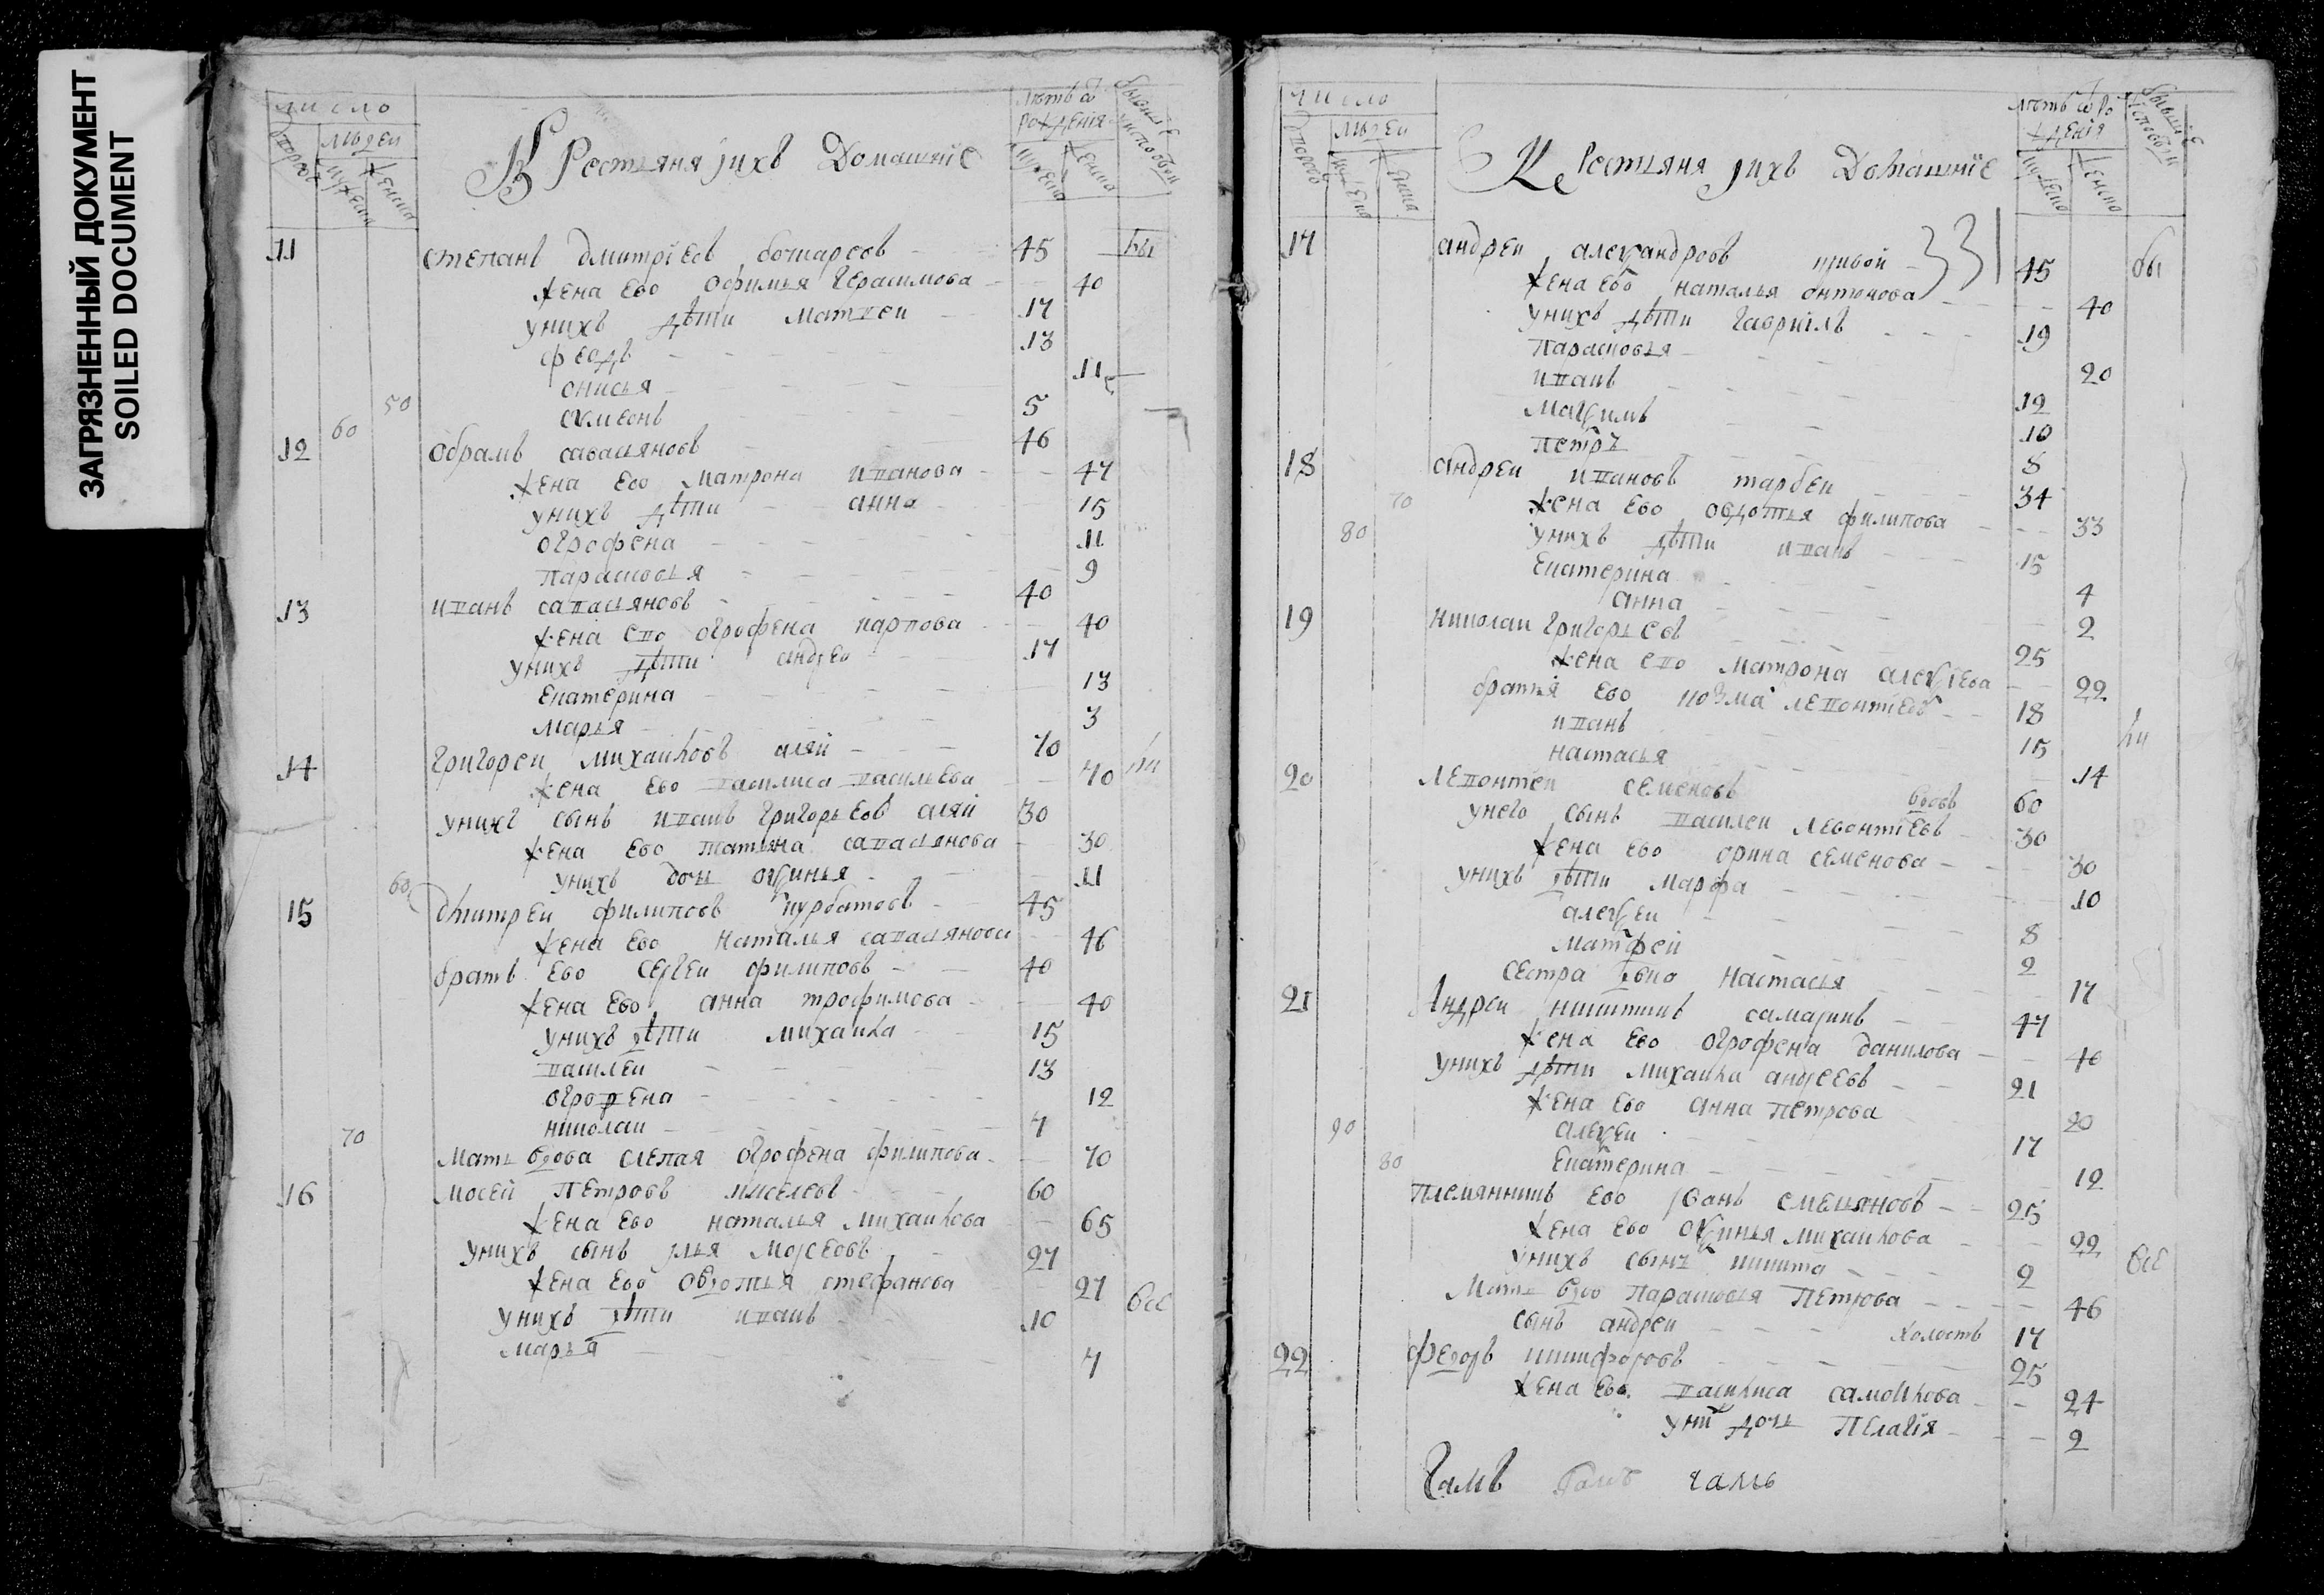 ЗАГРЯЗНЕННЫЙ ДОКУМЕНТ
SOILED DOCUMENT
число
людеи
Крестьяня ихъ Домашнiе
лѣтъ ѿ рожденiя
11 степанъ дмитрiевъ 45 бы
жена ево офимья герасимова 40
унихъ дѣти матвеи 17
федъ 13
онисья 11
симеонъ 5
60 50
12 обрамъ савасьяновъ 46
жена ево матрона ивановa 47
унихъ дѣти анна 15
огрофена 11
парасковья 9
13 иванъ савасьяновъ 40
жена ево огрофена карпова 40
унихъ дѣти андрео 17
екатерина 13
марья 3
14 григореи михаиловъ аляй 70
жена ево василиса васильева 70
унихъ сынъ иванъ григорьевъ аляй 30
жена ево татьяна савасьянова 30
унихъ дочь оѯинья 11
60
15 дмитреи филиповъ курбатовъ 45
жена ево наталья савасьянова 46
братъ ево сергеи филиповъ 40
жена ево анна трофимова 40
унихъ дѣти михаила 15
василеи 13
огрофена 12
николаи 7
70
мать вдова слепая огрофена филипова 70
16 мосей петровъ киселевъ 60
жена ево наталья михаилова 65
унихъ сынъ илья мосеовъ 27
жена ево овдотья стефанова 27
унихъ дѣти иванъ 10 всѣ
марья 7
число
людеи
Крестьяня ихъ Домашнiе
лѣтъ ѿ рожденiя
17 андреи алеѯандровъ кривой 45 бы
жена ево наталья онтонова 40
унихъ дѣти гаврiилъ 19
парасковья 20
иванъ 12
маѯимъ 10
петръ 8
18 андреи ивановъ тарбеи 34
70
жена ево овдотья филипова 33
80
унихъ дѣти иванъ 15
екатерина 4
анна 2
19 николаи григорьевъ 25
жена ево матрона алеѯiева 22
братья ево козма левонтiевъ 18
иванъ 15
настасья 14
20 левонтеи семеновъ вдовъ 60
унего сынъ василеи левонтiевъ 30
жена ево орина семенова 30
унихъ дѣти марфа 10
алеѯеи 8
матфей 2
сестра ево настасья 17
21 андреи никитинъ самаринъ 47
жена ево огрофена данилова 46
унихъ дѣти михаила андреевъ 21
жена ево анна петрова 20
90
алеѯеи 17
80
екатерина 12
племянникъ ево iванъ емельяновъ 25
жена ево оѯинья михаилова 22
унихъ сынъ никита 2 всѣ
мать вдова парасковья петрова 46
сынъ андреи холостъ 17
22 федоръ никифоровъ 25
жена ево василиса самоилова 24
уни дочь пелагiя 2